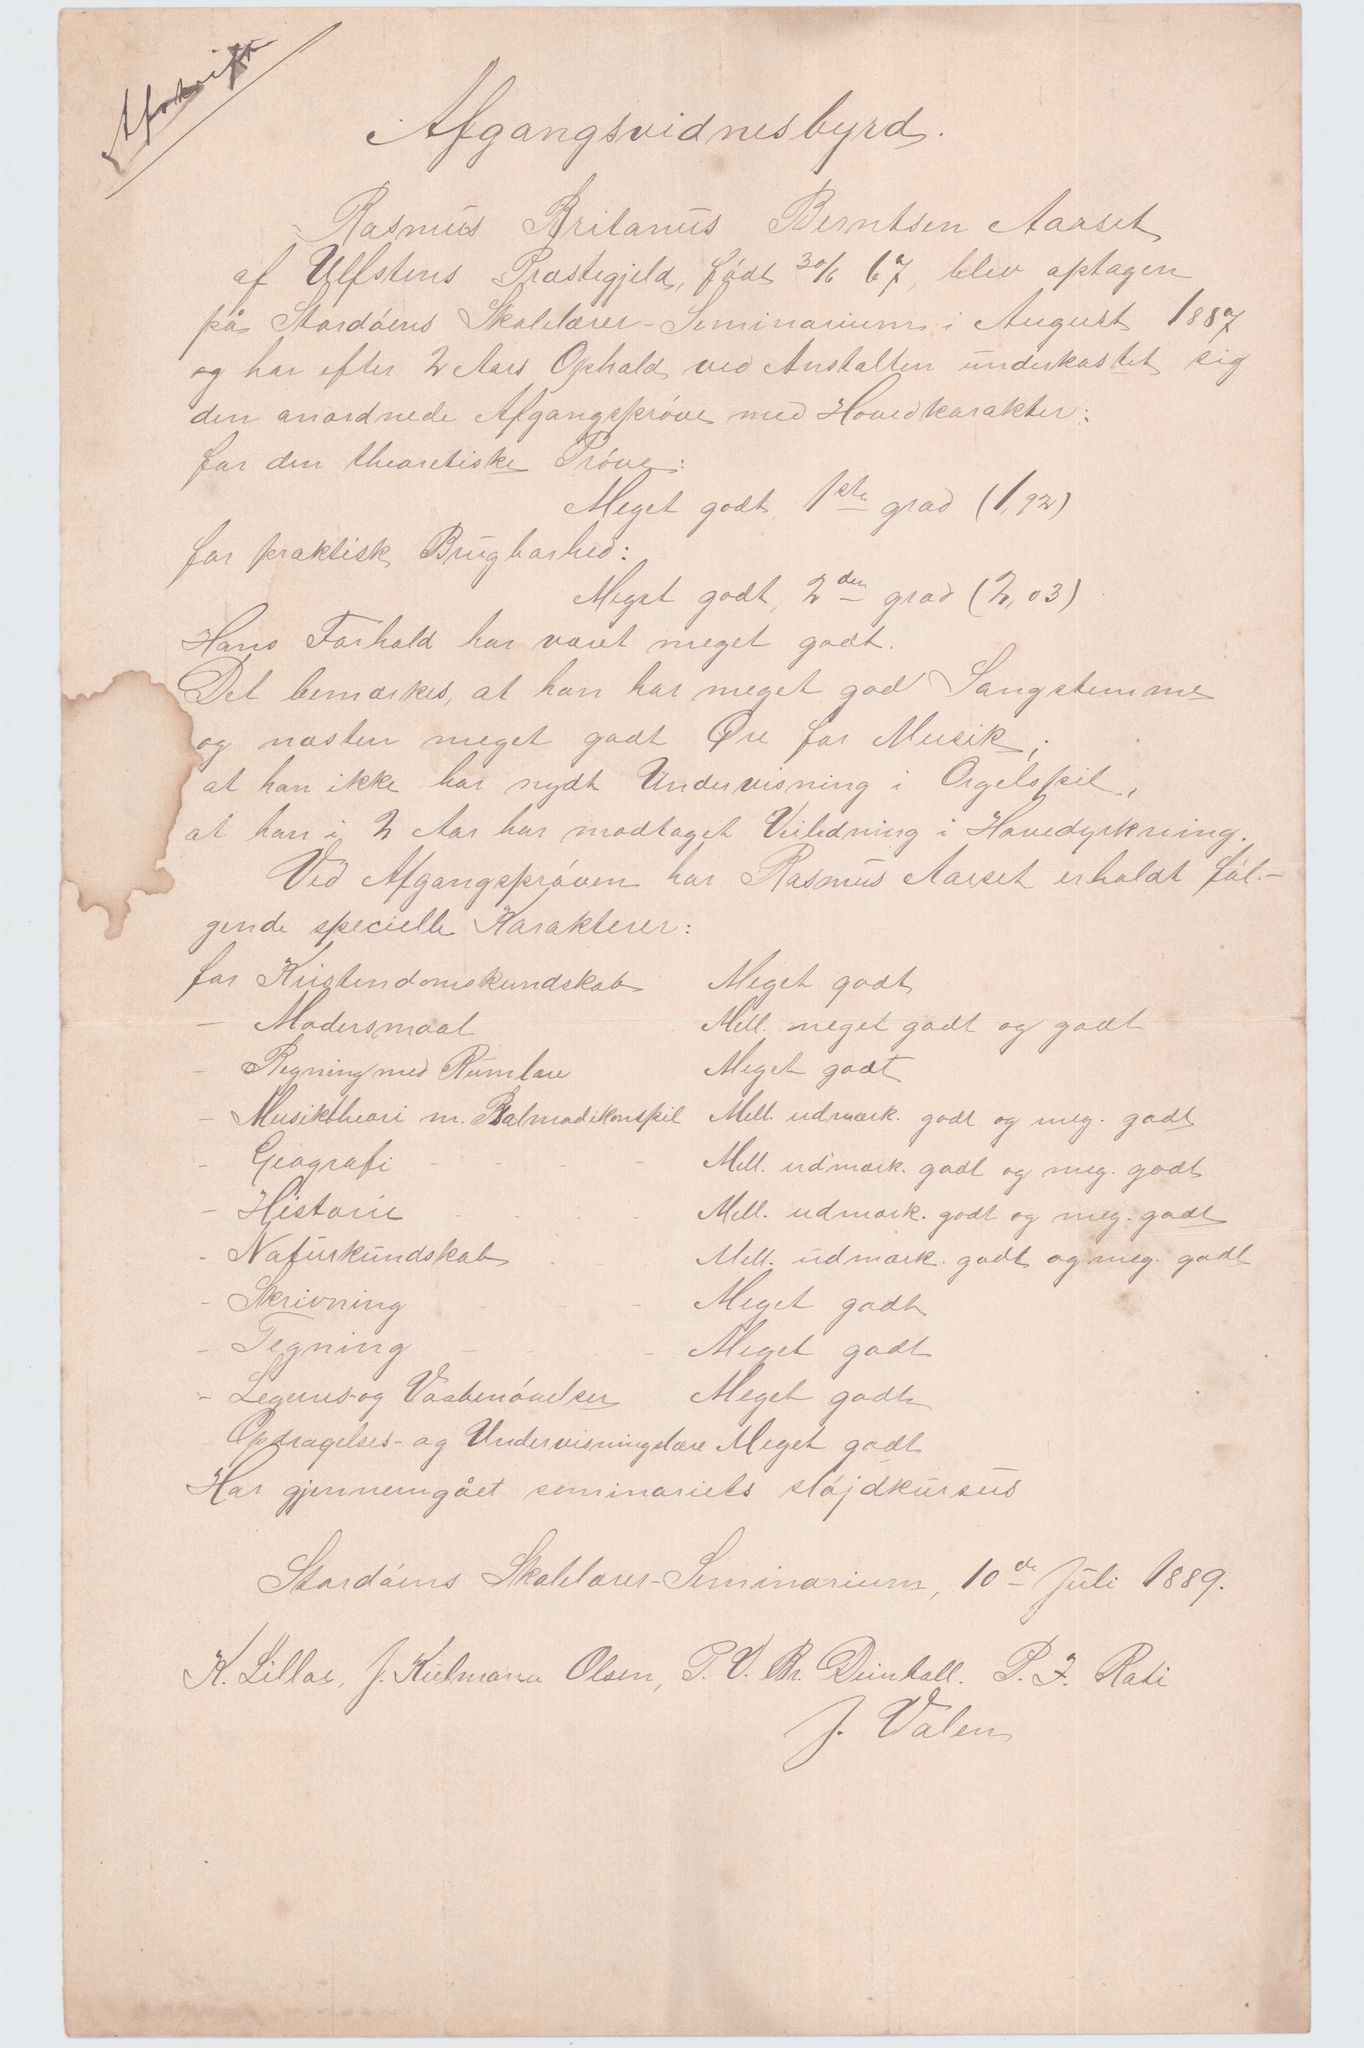 Afskrift
Afgangsvidnesbyrd.
Rasmus Britanus Berntsen Aarset
af Ulfstens Præstegjeld, født 30/6 67, blev optagen
på Stordøens Skolelærer-Seminarium i August 1887
og har efter 2 Aars Ophold ved Anstalten underkastet sig
den anordnede Afgangsprøve med Hovedkarakter:
for den theoretiske Prøve:
Meget godt, 1ste grad (1,92)
for praktisk Brugbarhed:
Meget godt, 2den grad (2,03)
Hans Forhold har været meget godt.
Det bemærkes, at han har meget god Sangstemme
og næsten meget godt Øre for Musik;
at han ikke har nydt Undervisning i Orgelspil,
at han i 2 Aar har modtaget Veiledning i Havedyrkning.
Ved Afgangsprøven har Rasmus Aarset erholdt føl-
gende specielle Karakterer:
for Kristendomskundskab Meget godt
- Modersmaal Mell. meget godt og godt
- Regning med Rumlære Meget godt
- Musiktheori m. Psalmodikonspil Mell. udmærk. godt og meg. godt
- Geografi - - - - Mell. udmærk. godt og meg. godt
- Historie - - - - Mell. udmærk. godt og meg. godt
- Naturkundskab - - Mell. udmærk. godt og meg. godt
- Skrivning - - - - Meget godt
- Tegning - - - - Meget godt
- Legems- og Vaabenøvelser Meget godt
Opdragelses- og Undervisningslære Meget godt
Har gjennemgået seminariets sløjdkursus
Stordøens Skolelærer-Seminarium, 10de Juli 1889.
K. Lillae, J. Kielmann Olsen, P. V. Br. Deinboll. P. J. Rabi
J. Valen